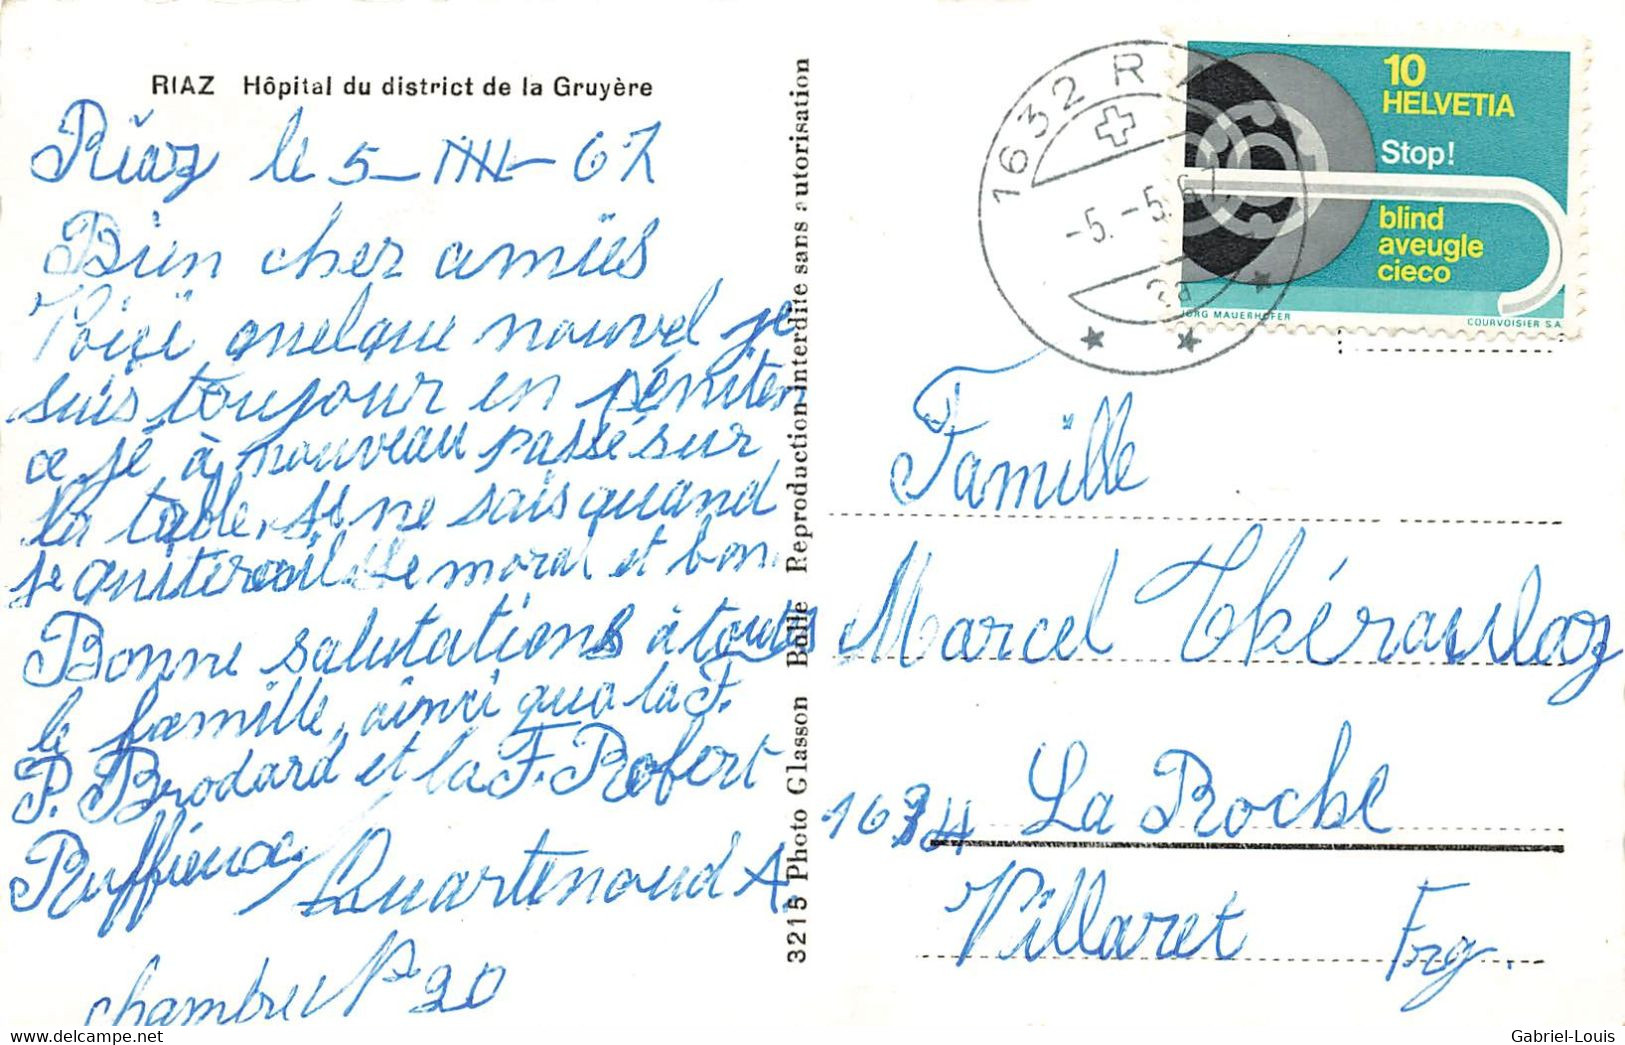 RIAZ Hôpital du district de la Gruyère
Riaz le 5 - IIIII - 67
Bien cher amiës
Voiçi quelque nouvel je
suis toujour en péniten
ce je à nouveau passé sur
la table, je ne sais quand
je quiterai le moral et bon.
Bonne salutations à toutes
le famille, ainci que la F.
P. Brodard et la F. Robert
Ruffieux
Quartenoud A.
chambre N° 20
3215 Photo Glasson Bulle Reproduction interdite sans autorisation
1632 RIAZ
-5.-5.67
10
HELVETIA
Stop!
blind
aveugle
cieco
JÖRG MAUERHOFER
COURVOISIER S.A.
Famille
Marcel Théraulaz
1634 La Roche
Villaret Frg.
delcampe.net
Gabriel-Louis